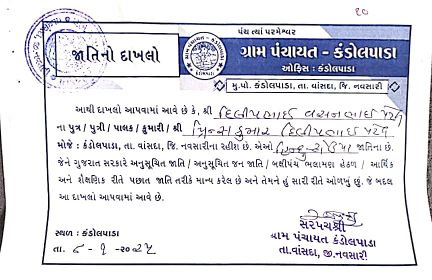 ૧૦
પંચ ત્યાં પરમેશ્વર
જાતિનો દાખલો
ગ્રામ પંચાયત - કંડોલપાડા
ઓફિસ : કંડોલપાડા
મુ.પો. કંડોલપાડા, તા. વાંસદા, જિ. નવસારી
આથી દાખલો આપવામાં આવે છે કે, શ્રી દિલીપભાઈ વસનભાઈ પટેલ
ના પુત્ર / પુત્રી / પાલક / કુમારી / શ્રી પ્રિન્સકુમાર દિલીપભાઈ પટેલ
મોજે : કંડોલપાડા, તા. વાંસદા, જિ. નવસારીના રહીશ છે. એઓ હિન્દુ જાતિના છે.
જેને ગુજરાત સરકારે અનુસૂચિત જાતિ / અનુસૂચિત જન જાતિ / બક્ષીપંચ ભલામણ હેઠળ / આર્થિક
અને શૈક્ષણિક રીતે પછાત જાતિ તરીકે માન્ય કરેલ છે અને તેમને હું સારી રીતે ઓળખું છું. જે બદલ
આ દાખલો આપવામાં આવે છે.
સ્થળ : કંડોલપાડા
તા.
સરપંચશ્રી
ગ્રામ પંચાયત કંડોલપાડા
તા.વાંસદા, જી.નવસારી